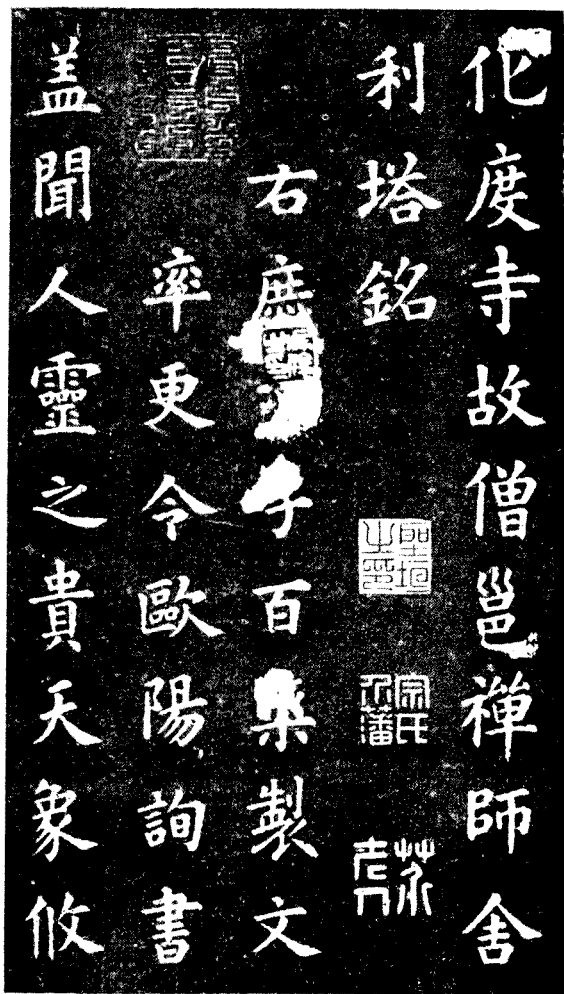 化度寺故僧邕禪師舍
利塔銘
右庶李百藥製文
率更令歐陽詢書
盖聞人靈之貴天象攸